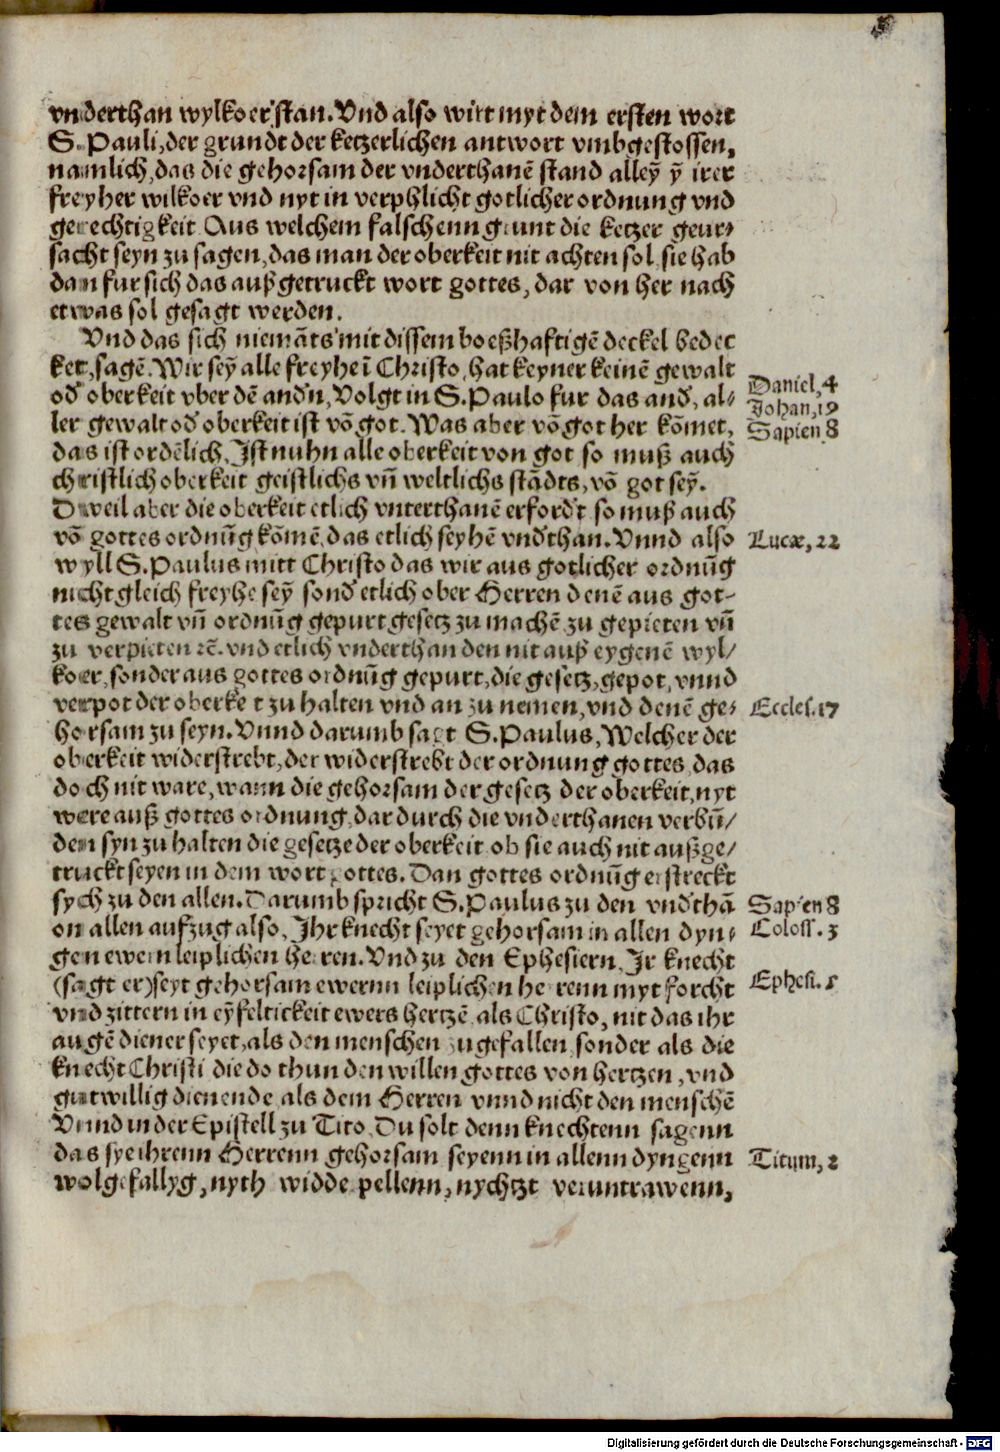 vnderthan wylkoer stan. Vnd also wirt myt dem ersten wort
S. Pauli, der grundt der ketzerlichen antwort vmbgestossen,
namlich, das die gehorsam der vnderthanē stand alleȳ ȳ irer
freyher wilkoer vnd nyt in verphlicht gotlicher ordnung vnd
gerechtigkeit. Aus welchem falschenn grunt die ketzer geur⸗
sacht seyn zu sagen, das man der oberkeit nit achten sol, sie hab
dan fur sich das außgetruckt wort gottes, dar von her nach
etwas sol gesagt werden.
Vnd das sich niemāts mit dissem boeßhaftigē deckel bedec
ket, sagē. Wir seȳ alle freyhe ī Christo, hat keyner keinē gewalt
od̄ oberkeit vber dē andn̄, Volgt in S. Paulo fur das and̄, al⸗
ler gewalt od̄ oberkeit ist vō got. Was aber vō got her kōmet,
das ist ordēlich, Ist nuhn alle oberkeit von got so muß auch
christlich oberkeit geistlichs vn̄ weltlichs stādts, vō got seȳ.
Dweil aber die oberkeit etlich vnterthanē erford̄t so muß auch
vō gottes ordnūg kōmē, das etlich seyhē vnd̄than. Vnnd also
wyll S. Paulus mitt Christo das wir aus gotlicher ordnūg
nicht gleich freyhe seȳ sond̄ etlich ober Herren denē aus got⸗
tes gewalt vn̄ ordnūg gepurt gesetz zu machē zu gepieten vn̄
zu verpieten ꝛc̄. vnd etlich vnderthan den nit auß eygenē wyl/
koer, sonder aus gottes ordnūg gepurt, die gesetz, gepot, vnnd
verpot der oberkeit zu halten vnd an zu nemen, vnd denē ge⸗
horsam zu seyn. Vnnd darumb sagt S. Paulus, Welcher der
oberkeit widerstrebt, der widerstrebt der ordnung gottes, das
doch nit ware, wann die gehorsam der gesetz der oberkeit, nyt
were auß gottes ordnung, dar durch die vnderthanen verbū/
den syn zu halten die gesetze der oberkeit ob sie auch nit außge/
truckt seyen in dem wort gottes. Dan gottes ordnūg erstreckt
sych zu den allen. Darumb spricht S. Paulus zu den vnd̄thā
on allen aufzug also, Ihr knecht seyet gehorsam in allen dyn⸗
gen ewern leiplichen herren. Vnd zu den Ephesiern, Ir knecht
(sagt er) seyt gehorsam ewernn leiplichen herrenn myt forcht
vnd zittern in eȳfeltickeit ewers hertzē als Christo, nit das ihr
augē diener seyet, als den menschen zu gefallen, sonder als die
knecht Christi die do thun den willen gottes von hertzen, vnd
gutwillig dienende, als dem Herren vnnd nicht den menschē
Vnnd in der Epistell zu Tito, Du solt denn knechtenn sagenn
das sye ihrenn Herrenn gehorsam seyenn in allenn dyngenn
wolgefallyg, nyth widderpellenn, nychtzt veruntrawenn,
Daniel, 4
Johan, 19
Sapien 8
Lucæ, 22
Eccles. 17
Sapien 8
Coloss. 3
Ephesi. 5
Titum, 2
Digitalisierung gefördert durch die Deutsche Forschungsgemeinschaft - DFG